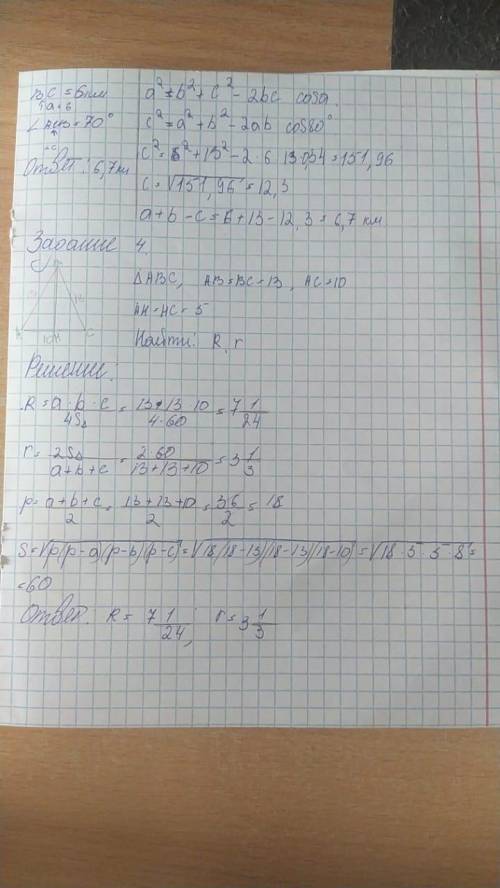 BC = 6км a² = b² + c² - 2bc cosa.
∠ACB = 70° c² = a² + b² - 2ab cos80°
c² = 6² + 13² - 2 · 6 13 0,34 = 151,96
Ответ: 6,7км
c = √151,96 = 12,3
a + b - c = 6 + 13 - 12,3 = 6,7 км
Задание 4.
ΔABC, AB = BC = 13, AC = 10
AH = HC = 5
Найти: R, r
Решение:
R = a · b · c / 4S△ = 13 · 13 · 10 / 4 · 60 = 7 1/24
r = 2S△ / a + b + c = 2 · 60 / 13 + 13 + 10 = 3 1/3
p = a + b + c / 2 = 13 + 13 + 10 / 2 = 36 / 2 = 18
S = √p(p-a)(p-b)(p-c) = √18(18-13)(18-13)(18-10) = √18 · 5 · 5 · 8 =
= 60
Ответ: R = 7 1/24; r = 3 1/3